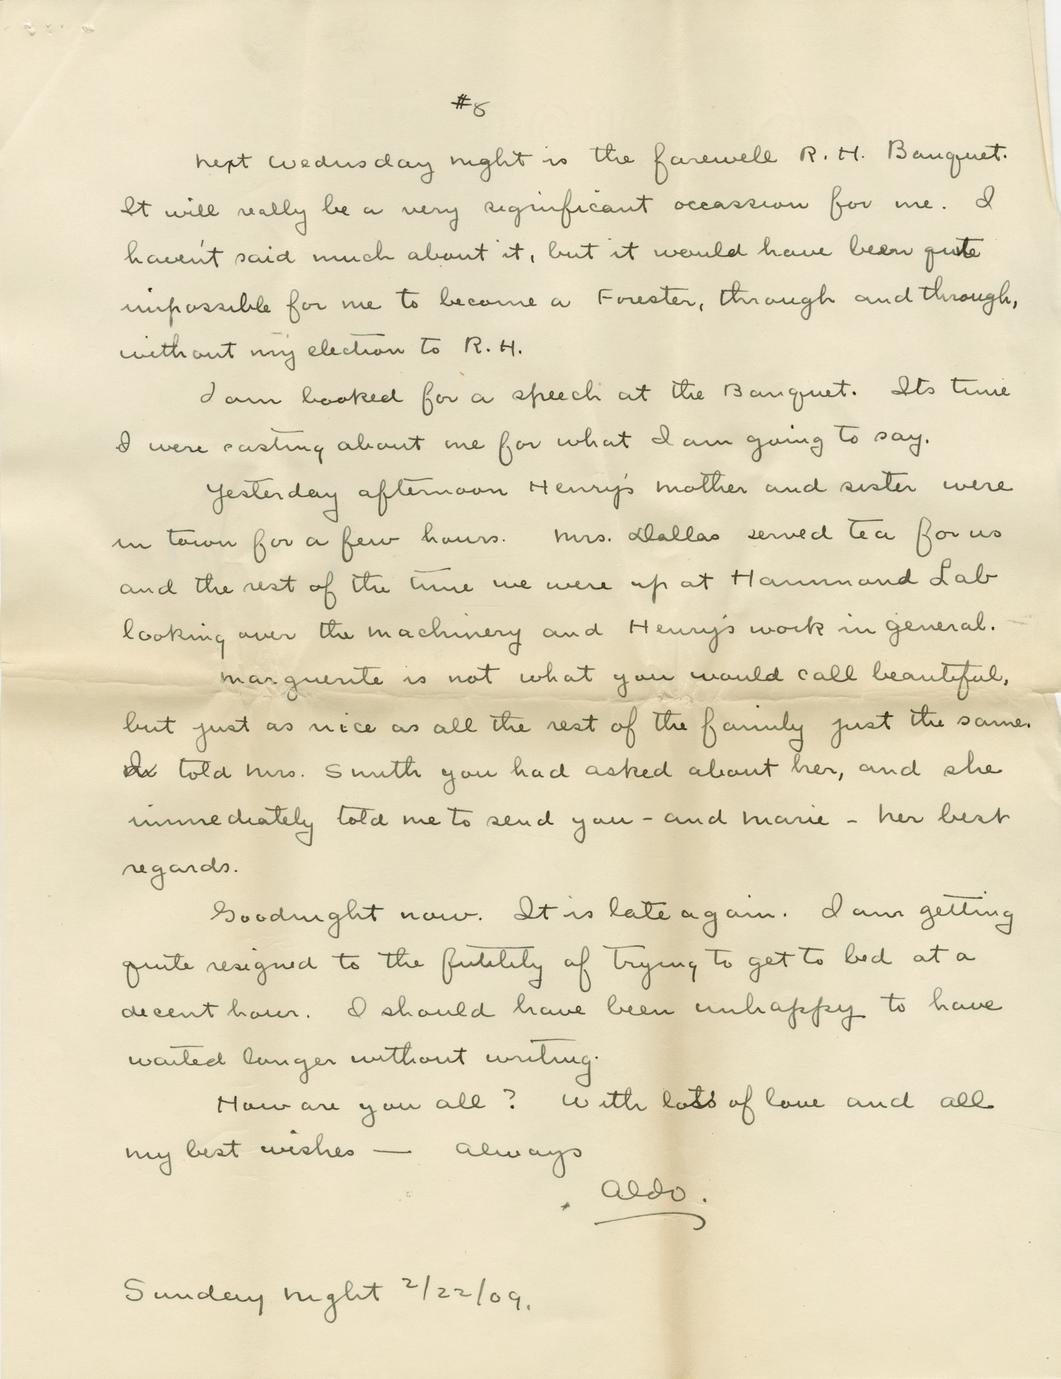 #8
Next Wednesday night is the farewell R. H. Banquet.
It will really be a very significant occassion for me. I
haven't said much about it, but it would have been quite
impossible for me to become a Forester, through and through,
without my election to R.H.
I am booked for a speech at the Banquet. Its time
I were casting about me for what I am going to say.
Yesterday afternoon Henry's mother and sister were
in town for a few hours. Mrs. Dallas served tea for us
and the rest of the time we were up at Hammond Lab
looking over the machinery and Henry's work in general.
Marguerite is not what you would call beautiful,
but just as nice as all the rest of the family just the same.
I told Mrs. Smith you had asked about her, and she
immediately told me to send you - and Marie - her best
regards.
Goodnight now. It is late again. I am getting
quite resigned to the futility of trying to get to bed at a
decent hour. I should have been unhappy to have
waited longer without writing.
How are you all? With lots of love and all
my best wishes — Always
Aldo.
Sunday night 2/22/09.